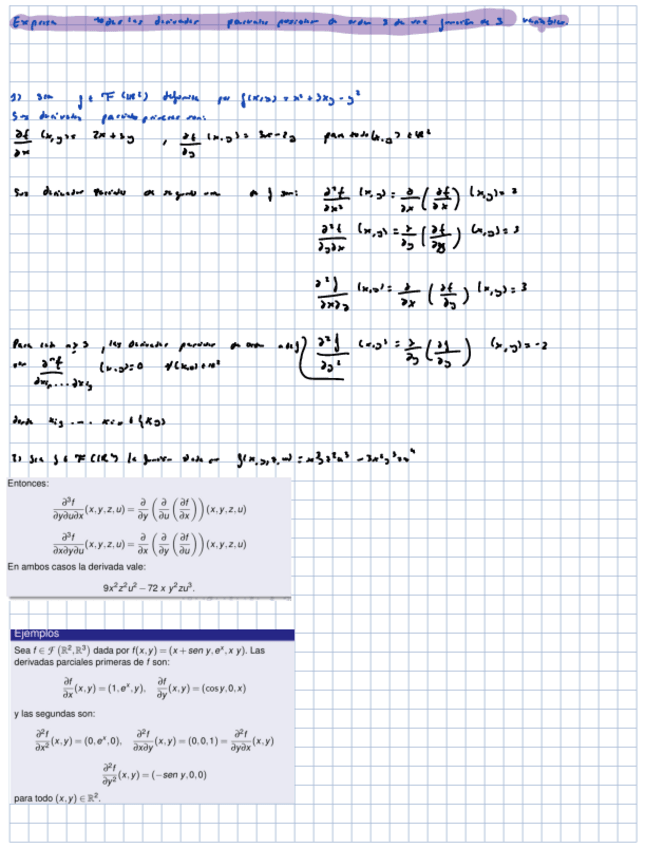 Expresa todas las derivadas parciales posibles de orden 3 de una función de 3 variables.
1) Sea f ∈ F(ℝ²) definida por f(x,y) = x² + 3xy - y²
Sus derivadas parciales primeras son:
∂f/∂x (x,y) = 2x + 3y , ∂f/∂y (x,y) = 3x - 2y para todo (x,y) ∈ ℝ²
Sus derivadas parciales de segundo orden de f son: ∂²f/∂x² (x,y) = ∂/∂x (∂f/∂x) (x,y) = 2
∂²f/∂y∂x (x,y) = ∂/∂y (∂f/∂x) (x,y) = 3
∂²f/∂x∂y (x,y) = ∂/∂x (∂f/∂y) (x,y) = 3
Para cada n ≥ 3, las derivadas parciales de orden n de f ∂²f/∂y² (x,y) = ∂/∂y (∂f/∂y) (x,y) = -2
son ∂ⁿf/∂xi₁...∂xiₙ (x,y) = 0 ∀(x,y) ∈ ℝ²
donde {x,y}
2) Sea f ∈ F(ℝ⁴) la función dada por f(x,y,z,u) =
Entonces:
∂³f/∂y∂u∂x (x,y,z,u) = ∂/∂y (∂/∂u (∂f/∂x)) (x,y,z,u)
∂³f/∂x∂y∂u (x,y,z,u) = ∂/∂x (∂/∂y (∂f/∂u)) (x,y,z,u)
En ambos casos la derivada vale:
9x²z²u² − 72 x y²zu³.
Ejemplos
Sea f ∈ ℱ(ℝ²,ℝ³) dada por f(x,y) = (x + sen y, eˣ, x y). Las
derivadas parciales primeras de f son:
∂f/∂x (x,y) = (1, eˣ, y), ∂f/∂y (x,y) = (cos y, 0, x)
y las segundas son:
∂²f/∂x² (x,y) = (0, eˣ, 0), ∂²f/∂x∂y (x,y) = (0,0,1) = ∂²f/∂y∂x (x,y)
∂²f/∂y² (x,y) = (−sen y, 0, 0)
para todo (x,y) ∈ ℝ².